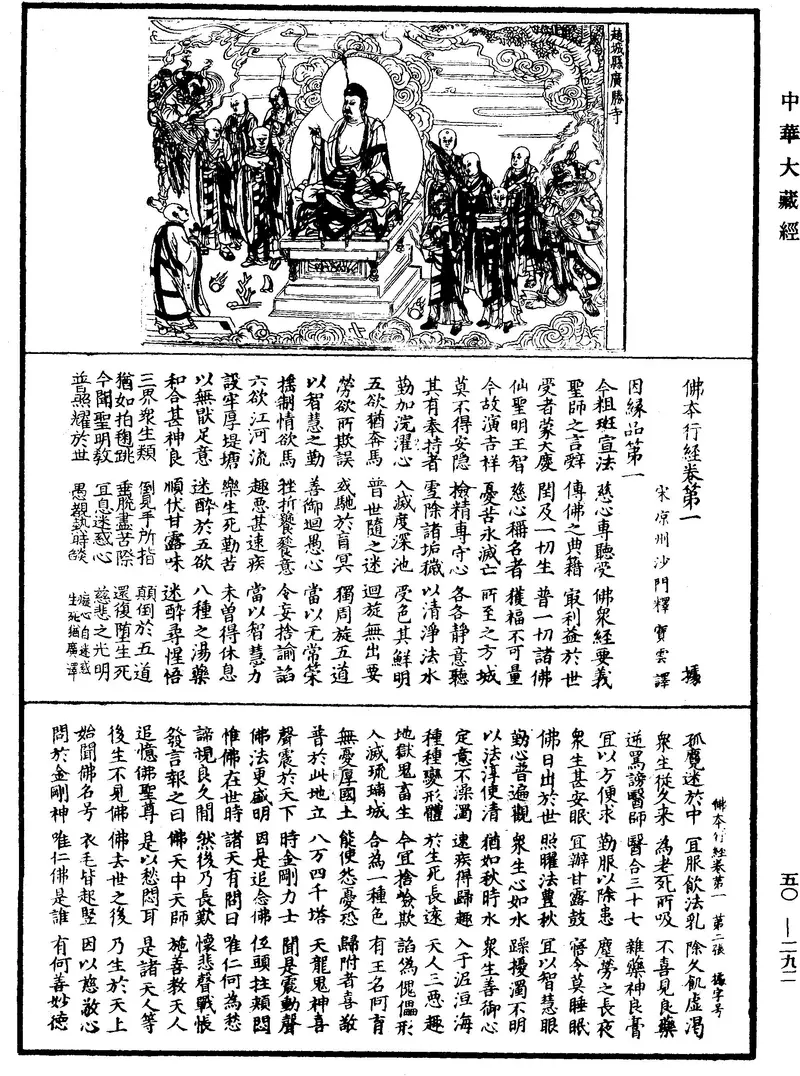 中華大藏經
趙城縣廣勝寺
佛本行經卷第一
宋涼州沙門釋寶雲譯 據
因緣品第一
今粗班宣法 慈心專聽受 佛衆經要義
聖師之言辭 傳佛之典籍 㝡利益於世
受者蒙大慶 閏及一切生 普一切諸佛
仙聖明王智 慈心稱名者 獲福不可量
今故演吉祥 憂苦永滅亡 所至之方城
莫不得安隱 撿精專守心 各各靜意聽
其有奉持者 雪除諸垢穢 以清淨法水
勤加浣濯心 入滅度深池 受色其鮮明
五欲猶奔馬 普世隨之迷 迴旋無出要
勞欲所欺誤 或馳於盲冥 獨周旋五道
以智慧之勤 善御迴愚心 當以无常策
搖制情欲馬 挫折饕餮意 令妄捨諭諂
六欲江河流 趣惡甚速疾 當以智慧力
設牢厚堤塘 樂生死勤苦 未曾得休息
以無猒足意 迷醉於五欲 八種之湯藥
和合甚神良 順伏甘露味 迷醉尋惺悟
三界衆生類 倒見手所指 顛倒於五道
猶如拍毱跳 垂脫盡苦際 還復墮生死
今聞聖明教 宜息迷惑心 慈悲之光明
普照耀於世 愚親熱時燄 癡心自迷惑 生死猶廣澤
佛本行經卷第一 第二張 據字号
孤 迷於中 宜服飲法乳 除久飢虛渴
衆生從久來 為老死所吸 不喜見良藥
逆罵謗醫師 醫合三十七 雜藥神良膏
宜以方便求 勤服以除患 塵勞之長夜
衆生甚安眠 宜辦甘露鼓 寤令莫睡眠
佛日出於世 照曜法豊秋 宜以智慧眼
勤心普遍觀 衆生心如水 躁擾濁不明
以法淳使清 猶如秋時水 衆生善御心
定意不澡濁 速疾得歸趣 入于泥洹海
種種變形體 於生死長遠 天人三惡趣
地獄鬼畜生 今宜捨欺欺 諂偽傀儡形
入滅琉璃城 合為一種色 有王名阿育
無憂厚國土 能使怨憂恐 歸附者喜敬
普於此地立 八万四千塔 天龍鬼神喜
聲震於天下 時金剛力士 聞是震動聲
佛法更盛明 因是追念佛 低頭拄頰悶
惟佛在世時 諸天有問曰 唯仁何為愁
諦視良久閒 然後乃長歎 懷悲聲戰悵
發言報之曰 佛天中天師 施善教天人
追憶佛聖尊 是以愁悶耳 是諸天人等
後生不見佛 佛去世之後 乃生於天上
始聞佛名号 衣毛皆起竪 因以慈敬心
問於金剛神 唯仁佛是誰 有何善妙德
五〇—二九二